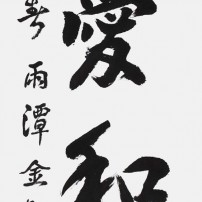 愛和
春雨潭金